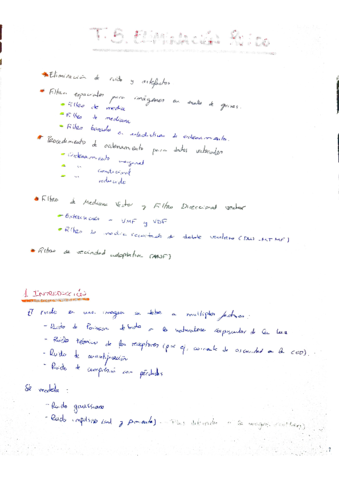 T. 5. Eliminación Ruido
Eliminación de ruido y artefactos
Filtros espaciales para imágenes en escala de grises.
Filtro de media
Filtro de mediana
Filtro basado en estadísticos de ordenamiento.
Procedimiento de ordenamiento para datos vectoriales
Ordenamiento marginal
" condicional
" reducido
Filtro de Mediana Vector y Filtro Direccional vector
Extensiones - VMF y VDF
Filtro de media recortada de doble ventana (DW-MTMF)
Filtro de vecindad adaptativa (ANF)
1. INTRODUCCIÓN
El ruido en una imagen se debe a múltiples factores:
- Ruido de Poisson debido a la naturaleza de la luz
- Ruido térmico de los receptores (por ej. corriente de oscuridad en la CCD).
- Ruido de cuantificación
- Ruido de compresión con pérdidas
Se modela:
- Ruido gaussiano
- Ruido impulsivo (sal y pimienta)